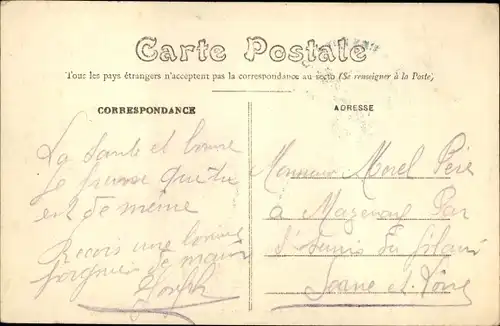 Carte Postale
Tous les pays étrangers n'acceptent pas la correspondance au recto (Se renseigner à la Poste)
CORRESPONDANCE
La Santé et bonne
Je pense que tu
en de même
Recois une bonne
poignée de main
Joseph
ADRESSE
Monsieur Morel Père
à Mazenay Par
St
Saone et Loire